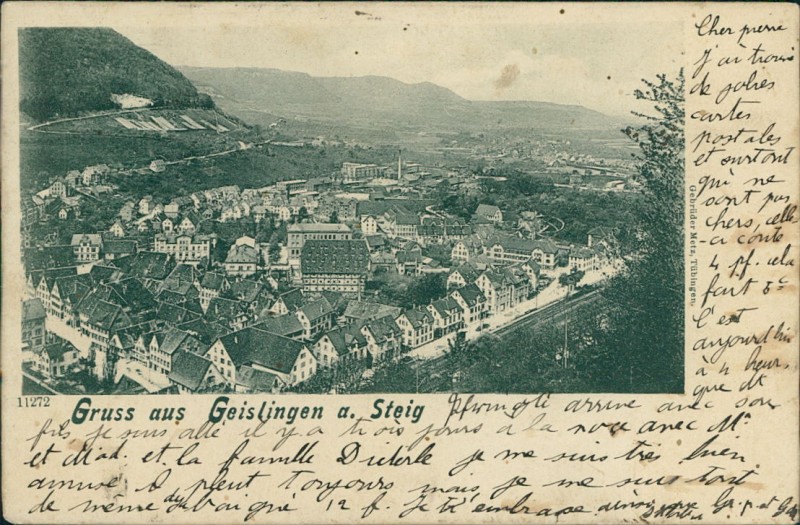 Cher pierre
j'ai trouvé
de jolies
cartes
postales
et surtout
qui ne
sont pas
chers, celle
-ci coute
4 pf. cela
fait 5c
C'est
aujourd'hui
à 4 heur.
que Mr
Gebrüder Metz, Tübingen.
11272
Gruss aus Geislingen a. Steig
arrive avec son
fils je suis allé il y a trois jours a la avec Mr
et Mad. et la famille Dieterle je me suis très bien
amusé il pleut toujours mais je me suis tout
de même du 12 f. Je t'embrasse ainsi que